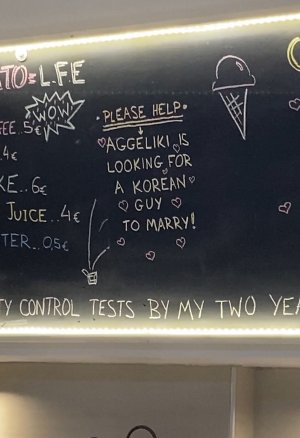 TO=LFE
WOW!
FEE..5€
..4€
KE..6€
JUICE..4€
TER...0,5€
• PLEASE HELP •
AGGELIKI IS
LOOKING FOR
A KOREAN
GUY
TO MARRY!
TY CONTROL TESTS BY MY TWO YEA